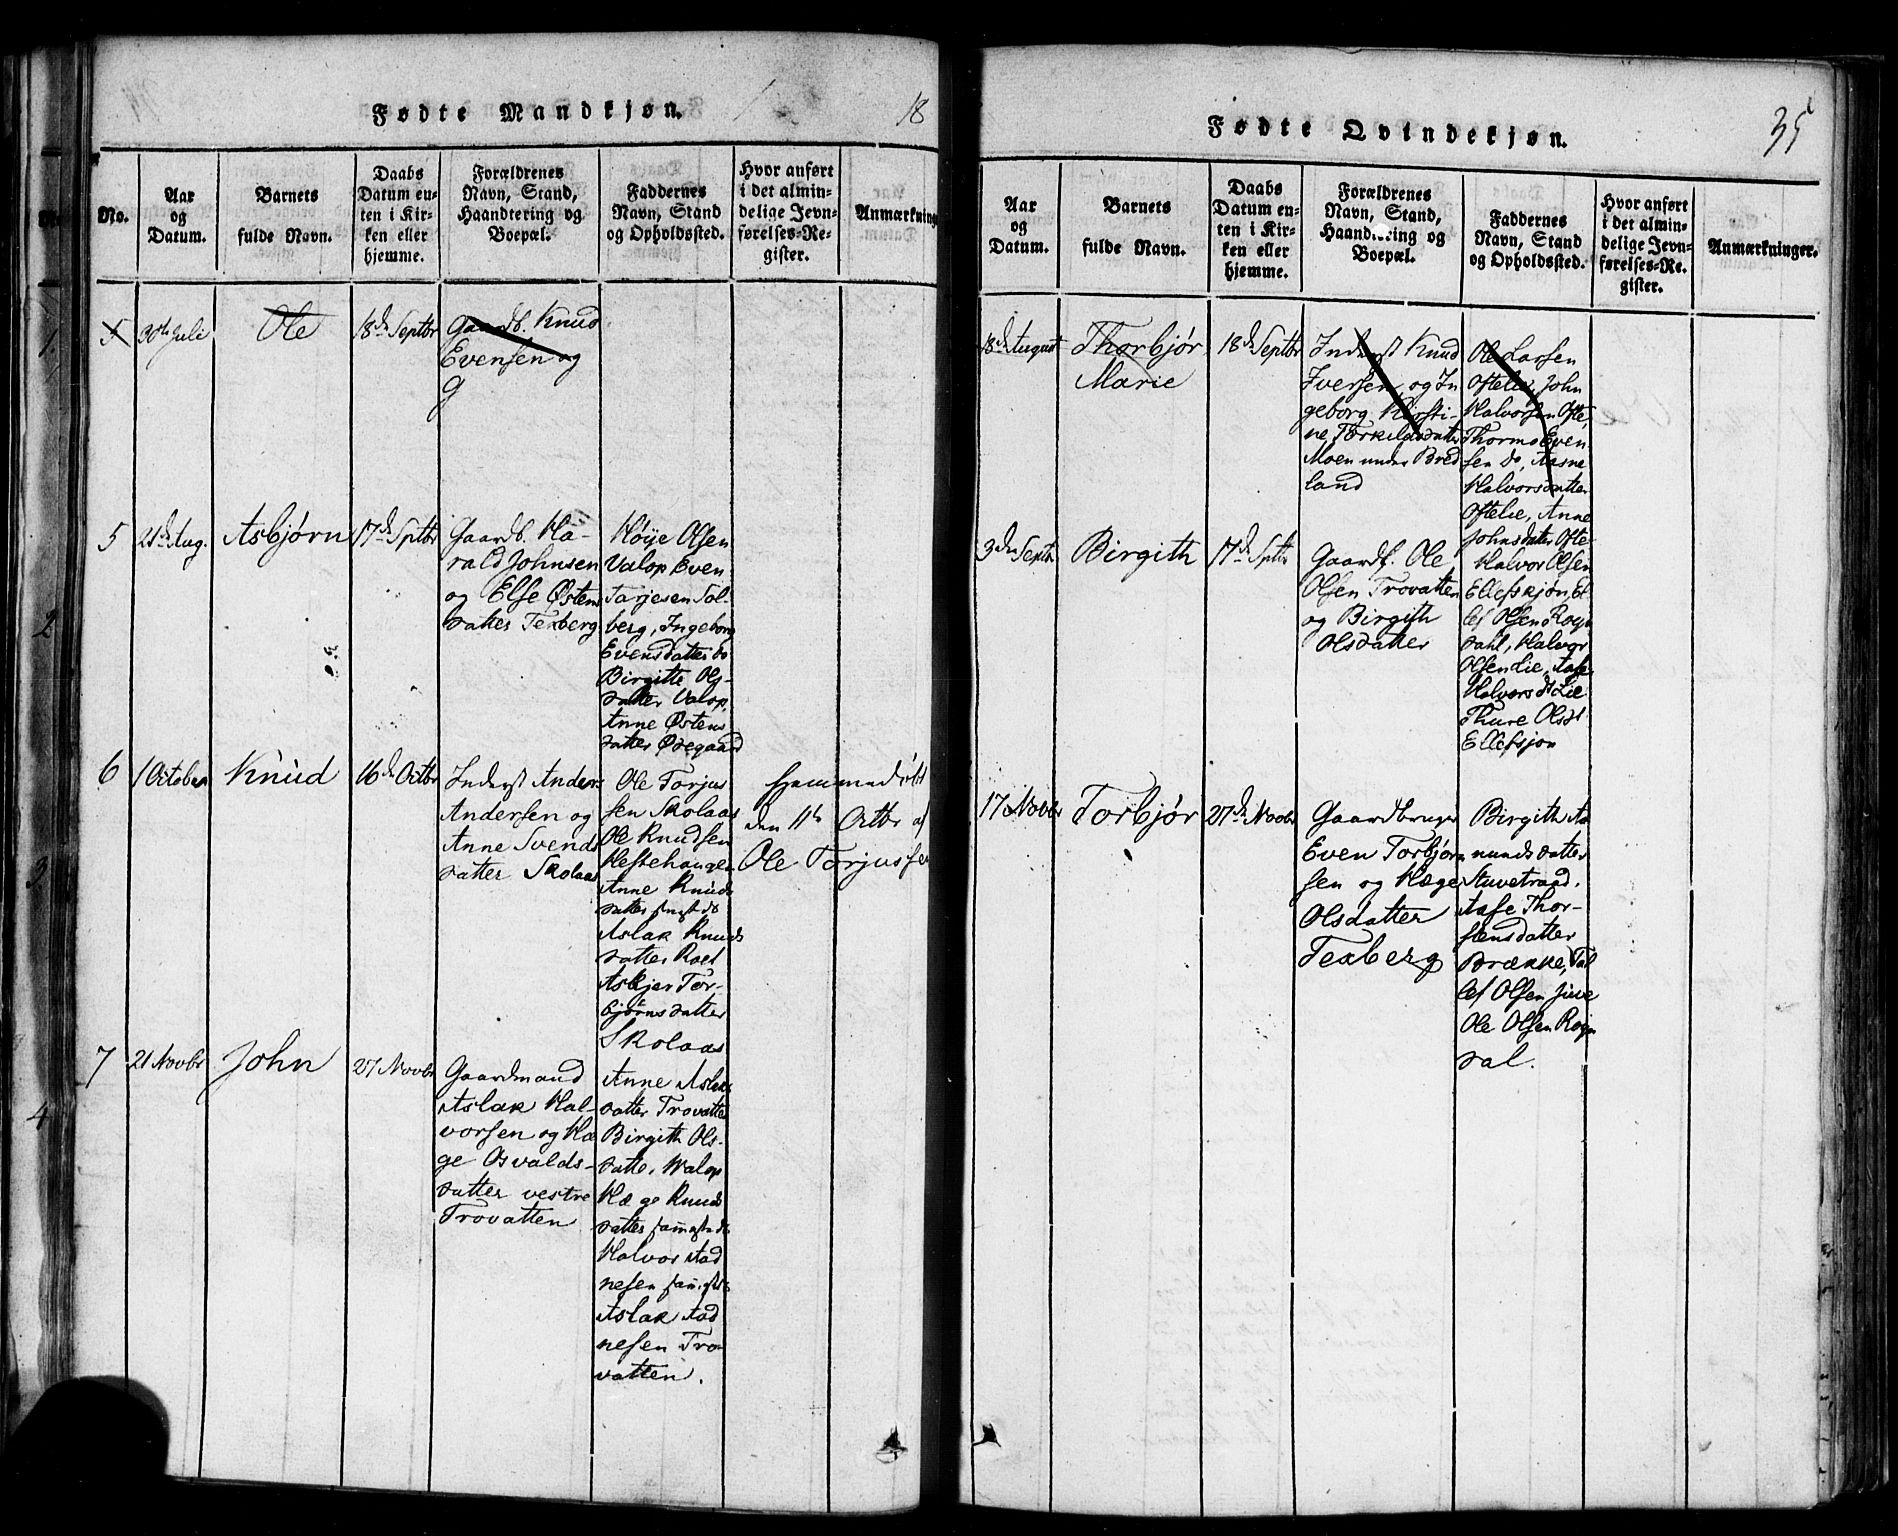 Fødte Mandkjøn.
18
No.
Aar
og
Datum.
Barnets
fulde Navn.
Daabs
Datum en-
ten i Kir-
ken eller
hjemme.
Forældrenes
Navn, Stand,
Haandtering og
Boepæl.
Faddernes
Navn, Stand
og Opholdssted.
Hvor anført
i det almin-
delige Jevn-
førelses-Re-
gister.
Anmærkninger
5
30th Juli
Ole
18de Septbr
Gaardb. Knud
Evensen og
G
5
21de Aug.
Asbjørn
17de Sptbr
Gaardb. Ha-
rald Johnsen
og Else Østens
datter Texberg
Høije Olsen
Valop Even
Tarjesen Sol-
berg, Ingeborg
Evensdatter do
Birgitte Ols-
datter Valop,
Anne Østens
datter Øvegaard
6
1 October
Knud
16de Octbr
Inderst Anders
Andersen og
Anne Svends
datter Skolaas
Ole Torjus
sen Skolaas
Ole Knudsen
Hestehaugen
Anne Knuds
datter
Aslak Knuds
datter Roet
Asbjer Tor-
bjørnsdatter
Skolaas
hjemmedøbt
den 11te Octbr af
Ole Torjussen
7
21 Novbr
John
27 Novbr
Gaardmand
Aslak Hal-
vorsen og Hæ
ge Osvalds-
datter vestre
Trovatten
Anne Aslaks
datter Trovatten
Birgith Ols-
datte, Walop
Hæge Knuds
datter
Halvor Aad
nesen
Aslak Aad
nesen Tro-
vatten.
1.
2
3
4
Fødte Qvindekjøn.
35
Aar
og
Datum.
Barnets
fulde Navn.
Daabs
Datum en-
ten i Kir-
ken eller
hjemme.
Forældrenes
Navn, Stand,
Haandtering og
Boepæl.
Faddernes
Navn, Stand
og Opholdssted.
Hvor anført
i det almin-
delige Jevn-
førelses-Re-
gister.
Anmærkninger.
18de August
Thorbjør
Marie
18de Septbr
Inderst Knud
Iversen og In
geborg Kirsti-
ne Torkilsdatter
Moen under Bred
land
Ole Larsen
Oftelie, John
Halvorsen Ofte,
Thormo Even
sen do, Aasne
Halvorsdatter
Oftelie, Anne
Johnsdatter Ofte
3den Septbr
Birgith
17de Sptbr
Gaardb. Ole
Olsen Trovatten
og Birgith
Olsdatter
Halvor Olsen
Ellefskjøn, El
lef Olsen Rogn
dahl, Halvor
Olsen Lie, Aase
Halvorsdt Lie
Thure Olsdt
Ellefsjon
17 Novbr
Torbjør
27de Novbr
Gaardbruger
Even Torbjørn
sen og Hæge
Olsdatter
Texberg
Birgith Aa
nundsdatter
Stuvetraad.
Aase Thor-
stensdatter
Brække, Tal
lef Olsen Juve
Ole Olsen Rogn
dal.